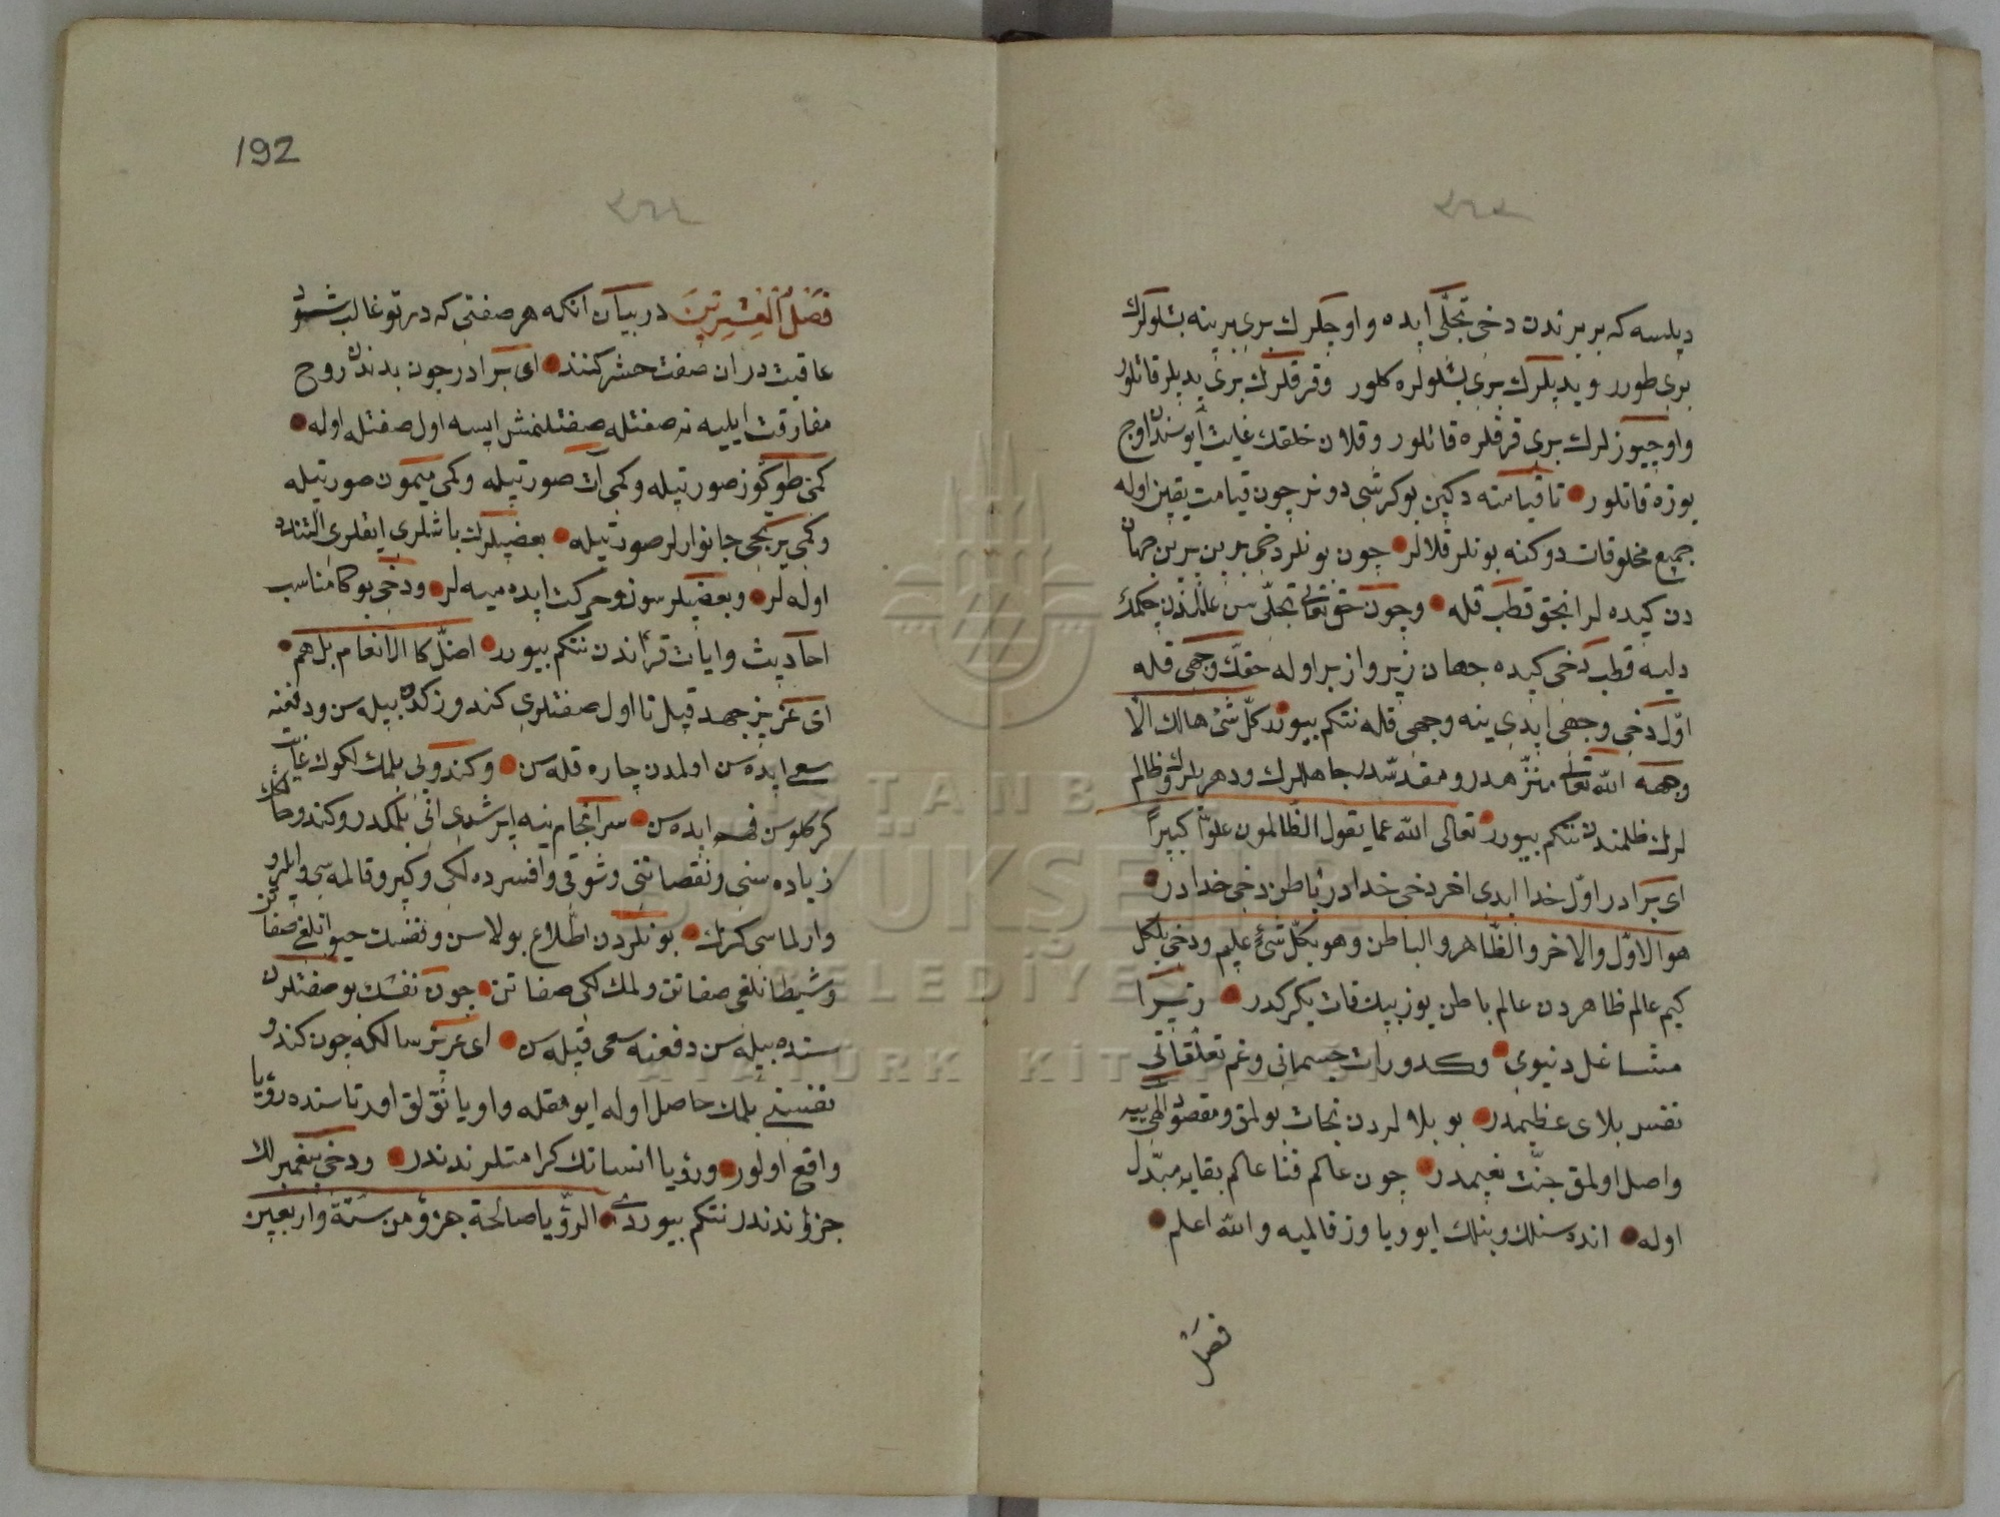 دیلسه که بر برندن دخی تجلّی ایده و اوچلرك بری برینه بشلولرك
بری طورر و یدیلرك بری بشلولره کلور و قرقلرك بری یدیلر قاتلور
و اوچیوزلرك بری قرقلره قاتلور و قلان خلقك غایت ایوسندن اوچ
یوزه قاتلور تا قیامته دکین بو کرشی دونر چون قیامت یقین اوله
جمیع مخلوقات دوکنه بونلر قلالر چون بونلر دخی برین برین جهان
دن کیده لر انجق قطب قله و چون حق تعالی تجلّی سن عالمدن چکمك
دلیه قطب دخی کیده جهان زیر و ازبر اوله حقّك وجهی قله
اوّل دخی وجهی ایدی ینه وجهی قله نتکم بیورر کلّ شئ هالك الّا
وجهه الله تعالی منزّهدر و مقدّسدر جاهللرك و دهریلرك و ظالم
لرك ظلمندن نتکم بیورر تعالی الله عما یقول الظالمون علوّا کبیراً
ای برادر اوّل خدا ایدی اخر دخی خدادر باطن دخی خدادر
هو الاوّل والاخر والظّاهر والباطن وهو بکلّ شئ علیم و دخی بلکل
کیم عالم ظاهردن عالم باطن یوز بیك قات یکرکدر زیرا
مشاغل دنیوی و کدورات جسمانی و غم تعلّقاتی
نفس بلای عظیمدر بو بلالردن نجات بولمق و مقصود الهی یه
واصل اولمق جنّت نعیمدر چون عالم فنا عالم بقایه مبدّل
اوله انده سنلك و بنلك ایو و یاوز قالمیه والله اعلم
فصل
192
فصل العشرین در بیان انکه هر صفتی که در تو غالب شود
عاقبت در ان صفت حشر کنند ای برادر چون بدندن روح
مفارقت ایلیه نه صفتله صفتلنمش ایسه اول صفتله اوله
کمی طوکوز صورتیله و کمی ات صورتیله و کمی میمون صورتیله
و کمی یرتجی جانوارلر صورتیله بعضیلرك باشلری ایقلری التنده
اوله لر و بعضیلر سوز و حرکت ایده میه لر و دخی بوکا مناسب
احادیث و ایات قراندن نتکم بیورر اضلّ کالانعام بل هم
ای عزیز جهد قیل تا اول صفتلری کندوزکده بیله سن و دفعنه
سعی ایده سن اولمدن چاره قله سن و کندویی بلمك لکوك غایت
کرکلوسن فهم ایده سن سرانجام ینه ایرشدی انی بلمکدر و کندو حالك
زیاده سنی و نقصاننی و شوقی و افسرده لکی و کیرو قالمه سی و ایلرو
وارلماسی کرك بونلردن اطّلاع بولاسن و نفسك حیوانلغی صفاتن
و شیطانلغی صفاتن و ملك لکی صفاتن چون نفسك بو صفتلرن
سنده بیله سن دفعنه سعی قیله سن ای عزیز سالکه چون کندو
نفسنی بلمك حاصل اوله اویومقله و اویانقلق اورتاسنده رؤیا
واقع اولور و رؤیا انسانك کرامتلرندندر و دخی پیغمبرلك
جزؤندندر نتکم بیوردی الرّؤیا صالحة جزؤ من ستّة واربعین